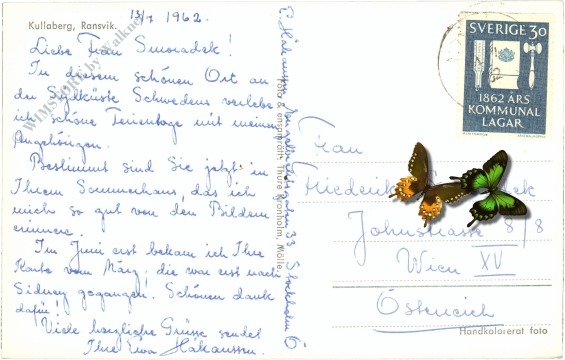 Kullaberg, Ransvik.
13/7 1962.
Liebe Frau Smoradek!
In diesem schönen Ort an
der Südküste Schwedens verlebe
ich schöne Ferientage mit meinen
Angehörigen.
Bestimmt sind Sie jetzt in
Ihrem Sommerhaus, das ich
mich so gut von den Bildern
erinnere.
Im Juni erst bekam ich Ihre
Karte vom März, die war erst nach
Sidney gegangen. Schönen dank
dafür!
Viele herzliche Grüsse sendet
Ihre Ewa Håkansson.
Håkansson, 33 Stockholm Ö
Foto & ensamrätt Thure Kronholm, Mölle.
SVERIGE 30
1862 ÅRS
KOMMUNAL
LAGAR
Frau
Johnstrasse 8/8
Wien XV
Österreich
Handkolorerat foto
© WIMSTORE by Walkner